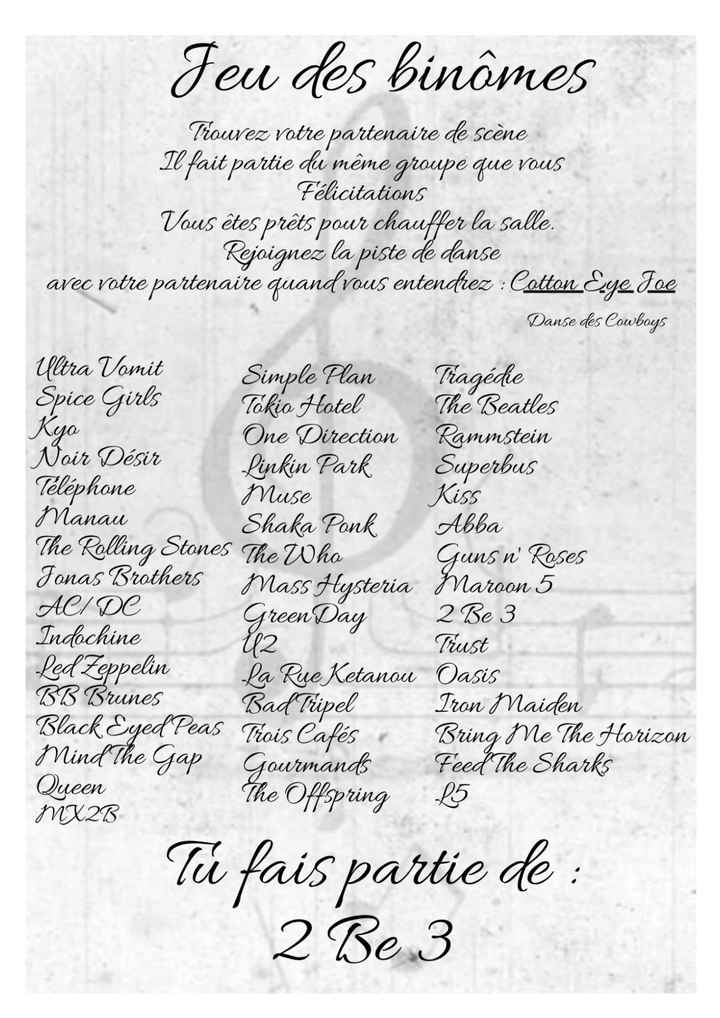 Jeu des binômes
Trouvez votre partenaire de scène
Il fait partie du même groupe que vous
Félicitations
Vous êtes prêts pour chauffer la salle.
Rejoignez la piste de danse
avec votre partenaire quand vous entendrez : Cotton Eye Joe
Danse des Cowboys
Ultra Vomit
Spice Girls
Kyo
Noir Désir
Téléphone
Manau
The Rolling Stones
Jonas Brothers
AC/DC
Indochine
Led Zeppelin
BB Brunes
Black Eyed Peas
Mind The Gap
Queen
MX2B
Simple Plan
Tokio Hotel
One Direction
Linkin Park
Muse
Shaka Ponk
The Who
Mass Hysteria
Green Day
U2
La Rue Ketanou
Bad Tripel
Trois Cafés
Gourmands
The Offspring
Tragédie
The Beatles
Rammstein
Superbus
Kiss
Abba
Guns n' Roses
Maroon 5
2 Be 3
Trust
Oasis
Iron Maiden
Bring Me The Horizon
Feed The Sharks
L5
Tu fais partie de :
2 Be 3